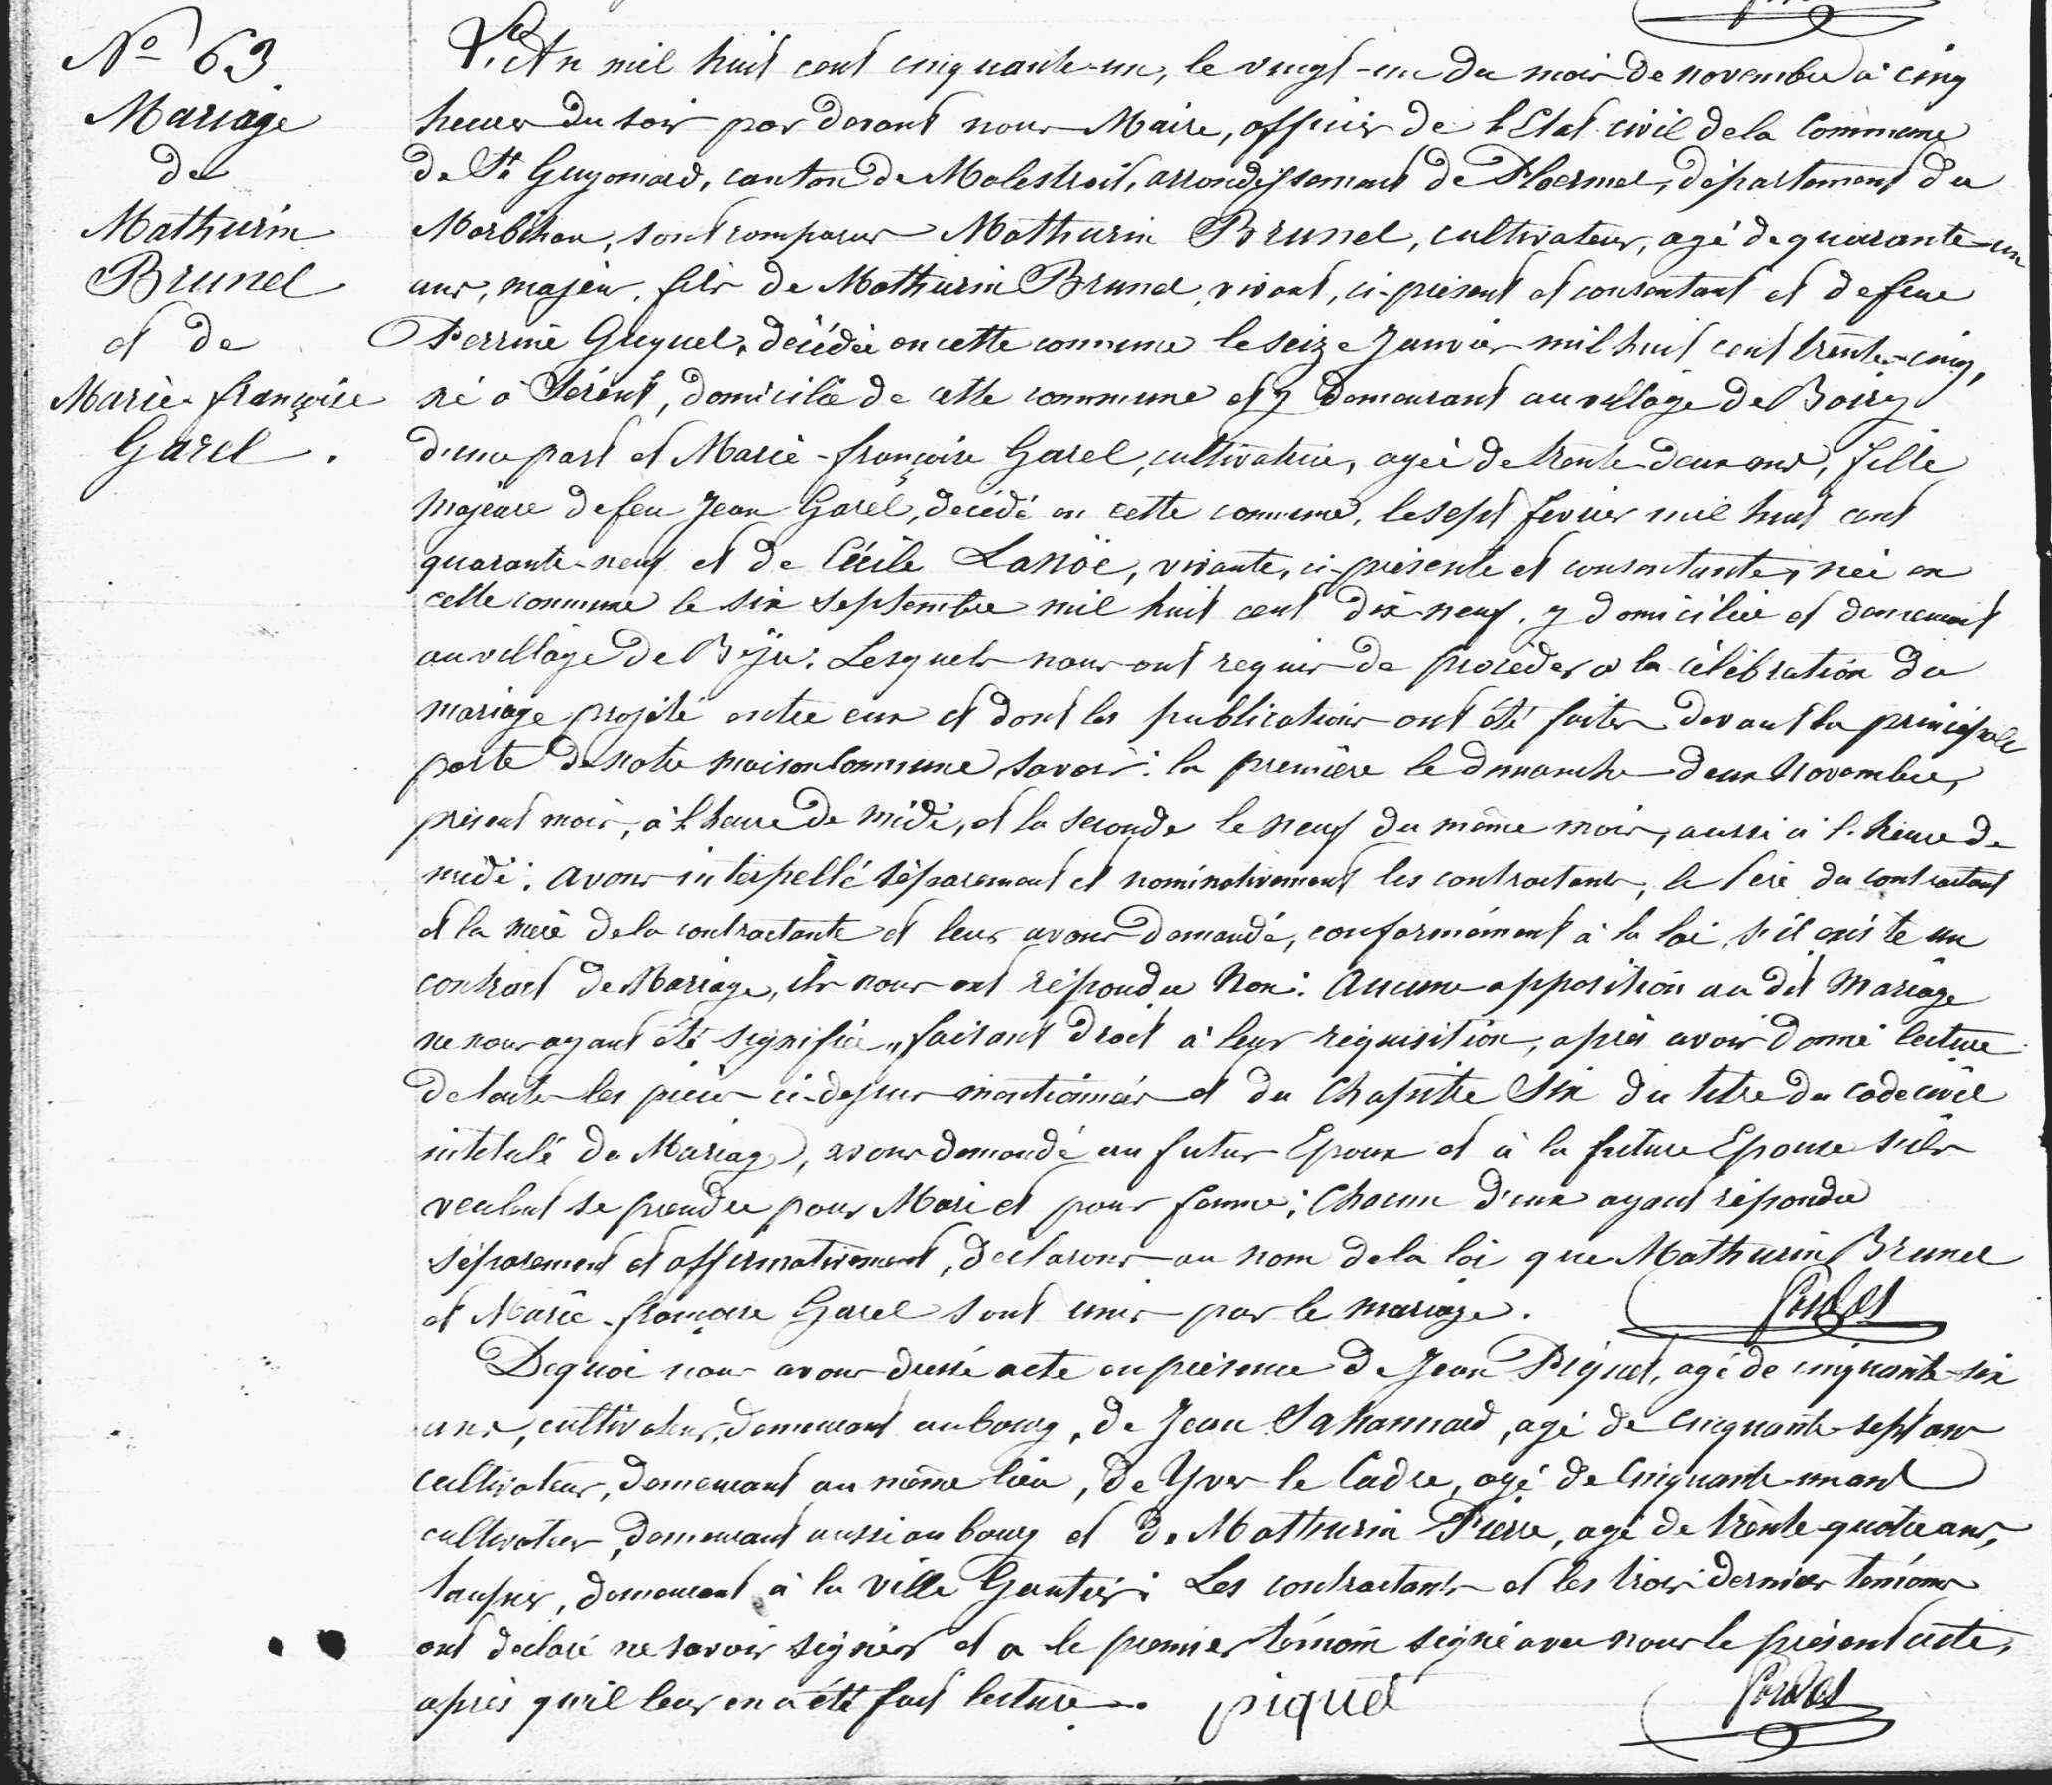 No 63
Mariage
de
Mathurin
Brunel
et de
Marie-françoise
Garel.
L'An mil huit cent cinquante-un, le vingt-un du mois de novembre à cinq
heures du soir par devant nous Maire, officier de l'Etat civil de la Commune
de St Guyomard, canton de Malestroit, arrondissement de Ploermel, département du
Morbihan, sont comparus Mathurin Brunel, cultivateur, agé de quarante-un
ans, majeur, fils de Mathurin Brunel, vivant, ci-présent et consentant et de feue
Perrine Guguel, décédée en cette commune le seize Janvier mil huit cent trente-cinq,
né à Sérent, domicilié de cette commune et y demeurant au village de
d'une part et Marie-françoise Garel, cultivatrice, agée de trente-deux ans, fille
majeure de feu Jean Garel, décédé en cette commune, le sept fevrier mil huit cent
quarante-neuf et de Cécile Lanoë, vivante, ci-présente et consentante, née en
cette commune le six septembre mil huit cent dix-neuf, y domiciliée et demeurant
au village de Lesquels nous ont requis de procéder à la célébration du
mariage projeté entre eux et dont les publications ont été faites devant la principale
porte de notre maison Commune, savoir: la première le dimanche deux Novembre,
présent mois, à l'heure de midi, et la seconde le neuf du même mois, aussi à l'heure de
midi; avons interpellé séparement et nominativement les contractants, le Père du contractant
et la mère de la contractante et leur avons demandé, conformément à la loi, s'il existe un
contract de Mariage, ils nous ont répondu Non: Aucune opposition au dit Mariage
ne nous ayant été signifiée, faisant droit à leur réquisition, après avoir donné lecture
de toutes les pièces ci-dessus mentionnées et du Chapitre Six du titre du code civil
intitulé du Mariage, avons demandé au futur Epoux et à la future Epouse s'ils
veulent se prendre pour Mari et pour femme; Chacun d'eux ayant répondu
séparement et affirmativement, déclarons au nom de la loi que Mathurin Brunel
et Marie-françoise Garel sont unis par le mariage.
De quoi nous avons dressé acte en présence de Jean Piquet, agé de cinquante-six
ans, cultivateur, demeurant au bourg, de Jean agé de cinquante-sept ans
cultivateur, demeurant au même lieu, de Yves le Cadre, agé de Cinquante-un ans
cultivateur, demeurant aussi au bourg et de Mathurin Pierre, agé de trente-quatre ans,
demeurant à la ville Gautier; Les contractants et les trois derniers témoins
ont déclaré ne savoir signer et a le premier témoin signé avec nous le présent acte,
après qu'il leur en a été fait lecture. piquet